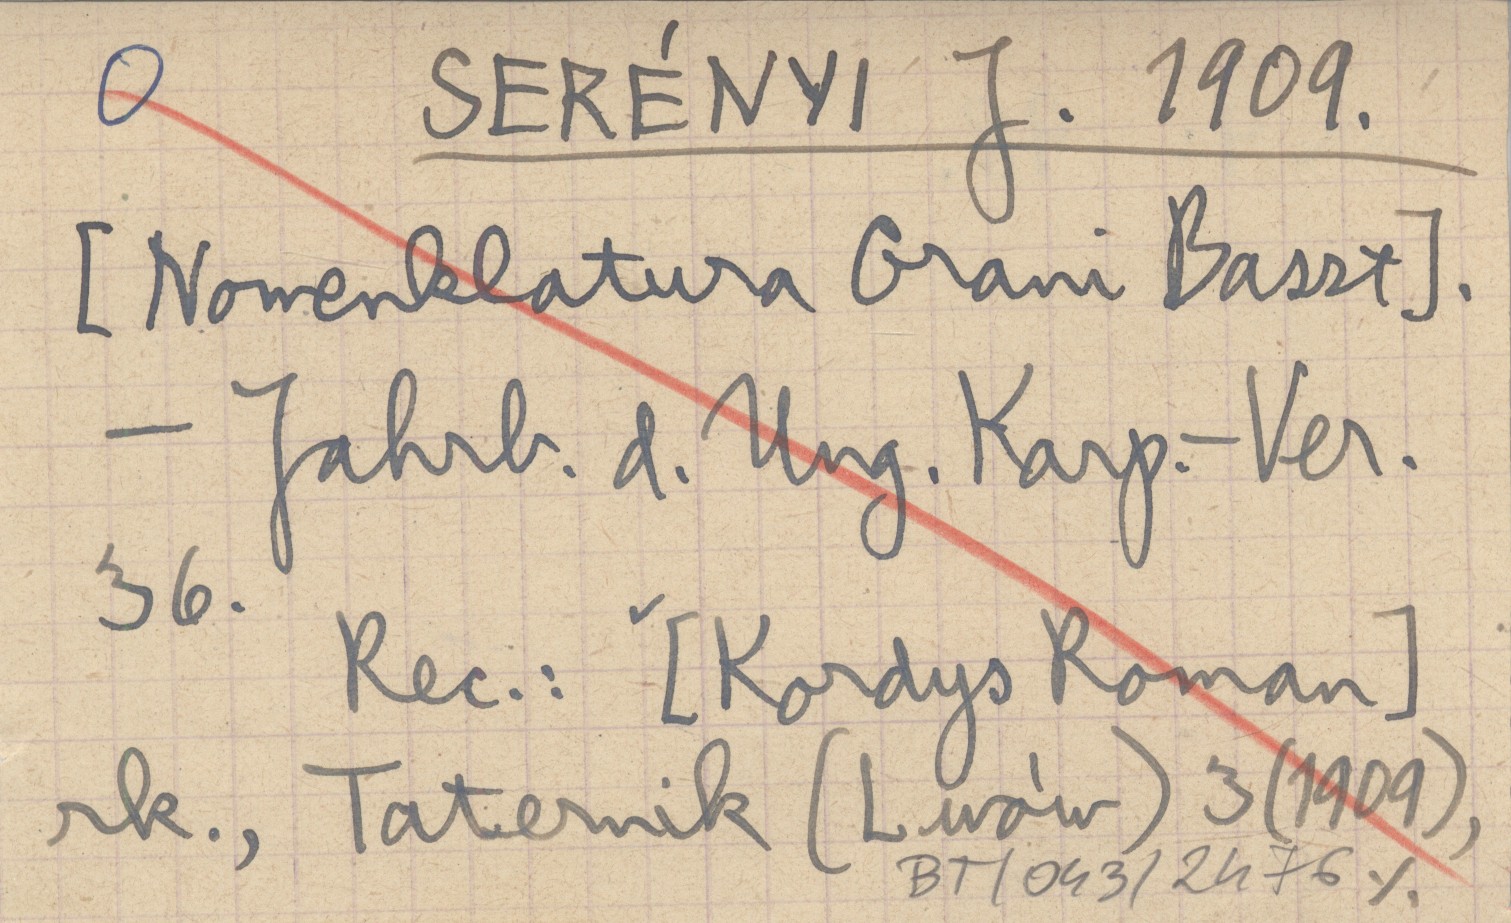 O SERÉNYI J. 1909.
[Nomenklatura Grani Baszt].
— Jahrb. d. Ung. Karp.-Ver.
36.
Rec.: [Kordys Roman]
rk., Taternik (Lwów) 3(1909),
BT/043/2476 ⁒